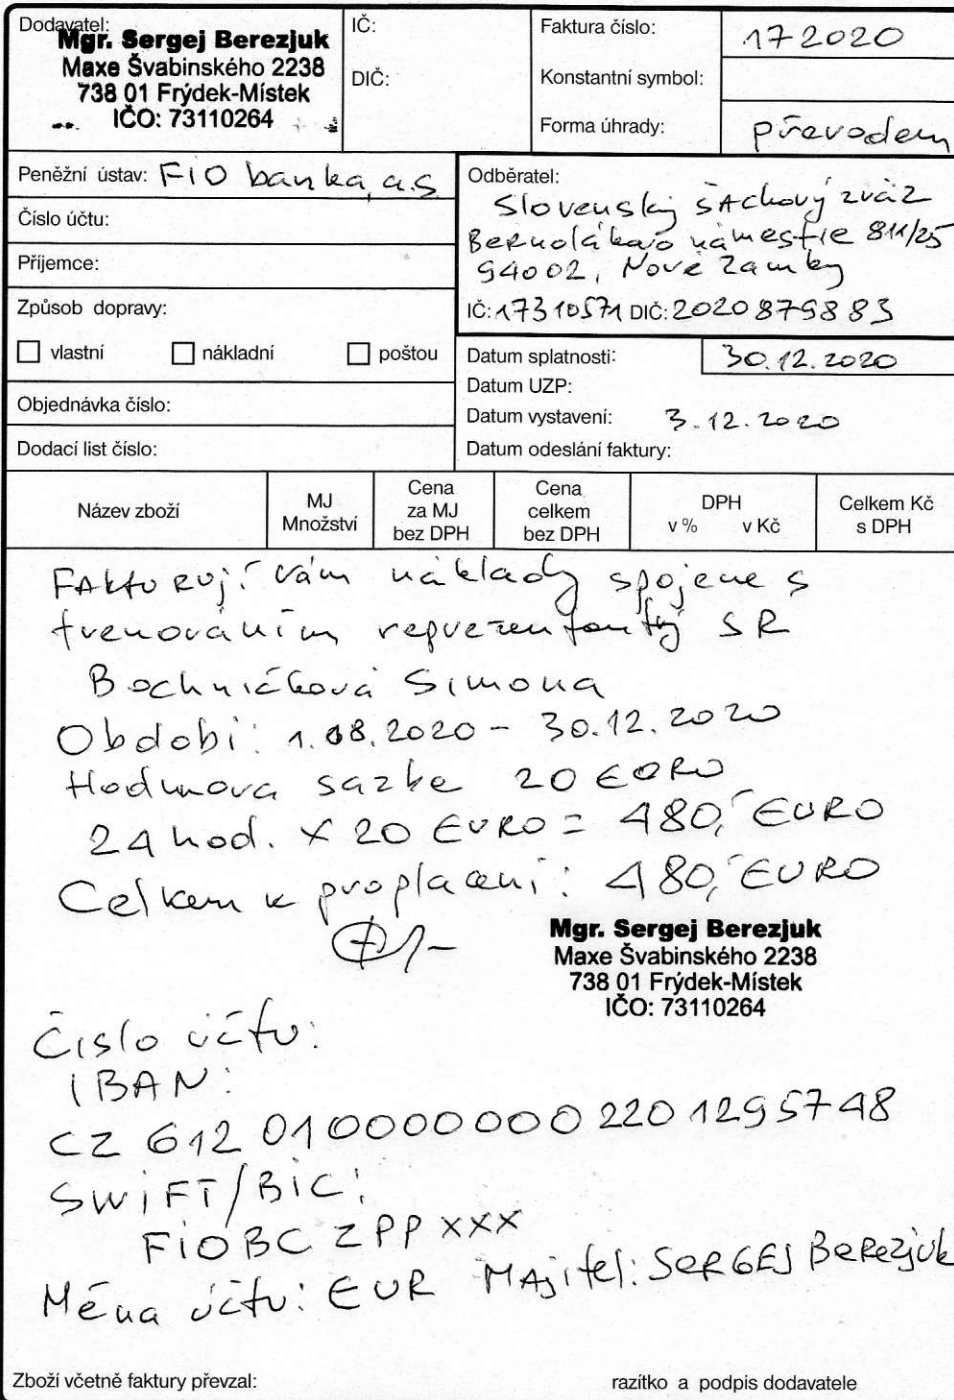 Dodavatel:
Mgr. Sergej Berezjuk
Maxe Švabinského 2238
738 01 Frýdek-Místek
IČO: 73110264
IČ:
DIČ:
Faktura číslo: 172020
Konstantní symbol:
Forma úhrady: převodem
Peněžní ústav: FIO banka, a.s
Číslo účtu:
Příjemce:
Způsob dopravy:
vlastní nákladní poštou
Objednávka číslo:
Dodací list číslo:
Odběratel:
Slovenský šachový zväz
Bernolákovo námestie 811/25
94002, Nové Zamky
IČ: 17310571 DIČ: 2020879883
Datum splatnosti: 30.12.2020
Datum UZP:
Datum vystavení: 3.12.2020
Datum odeslání faktury:
Název zboží
MJ
Množství
Cena
za MJ
bez DPH
Cena
celkem
bez DPH
DPH
v % v Kč
Celkem Kč
s DPH
Fakturuji vám náklady spojene s
trenováním reprezentantky SR
Bochničková Simona
Období: 1.08.2020 - 30.12.2020
Hodinova sazba 20 EURO
24 hod. x 20 EURO = 480,- EURO
Celkem k proplaceni: 480,- EURO
Mgr. Sergej Berezjuk
Maxe Švabinského 2238
738 01 Frýdek-Místek
IČO: 73110264
Číslo účtu:
IBAN:
CZ 612 010000000 2201295748
SWIFT/BIC:
FIOBCZPPXXX
Měna účtu: EUR Majitel: SERGEJ Berezjuk
Zboží včetně faktury převzal:
razítko a podpis dodavatele